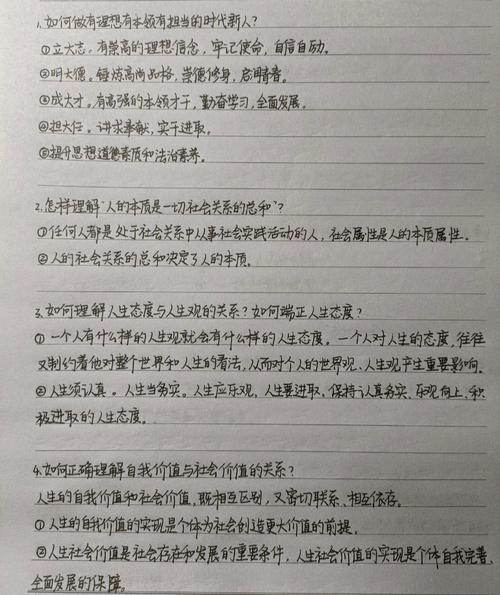 1.如何做有理想有本领有担当的时代新人?
①立大志。有崇高的理想信念,牢记使命,自信自励。
②明大德。锤炼高尚品格,崇德修身,启润青春。
③成大才。有高强的本领才干,勤奋学习,全面发展。
④担大任。讲求奉献,实干进取。
⑤提升思想道德素质和法治素养。
2.怎样理解"人的本质是一切社会关系的总和"?
①任何人都是处于社会关系中从事社会实践活动的人,社会属性是人的本质属性。
②人的社会关系的总和决定了人的本质。
3.如何理解人生态度与人生观的关系?如何端正人生态度?
①一个人有什么样的人生观就会有什么样的人生态度。一个人对人生的态度,往往
又制约着他对整个世界和人生的看法,从而对个人的世界观、人生观产生重要影响。
②人生须认真。人生当务实。人生应乐观,人生要进取,保持认真务实、乐观向上、积
极进取的人生态度。
4.如何正确理解自我价值与社会价值的关系?
人生的自我价值和社会价值,既相互区别,又密切联系、相互依存。
①人生的自我价值的实现是个体为社会创造更大价值的前提。
②人生社会价值是社会存在和发展的重要条件,人生社会价值的实现是个体自我完善、
全面发展的保障。